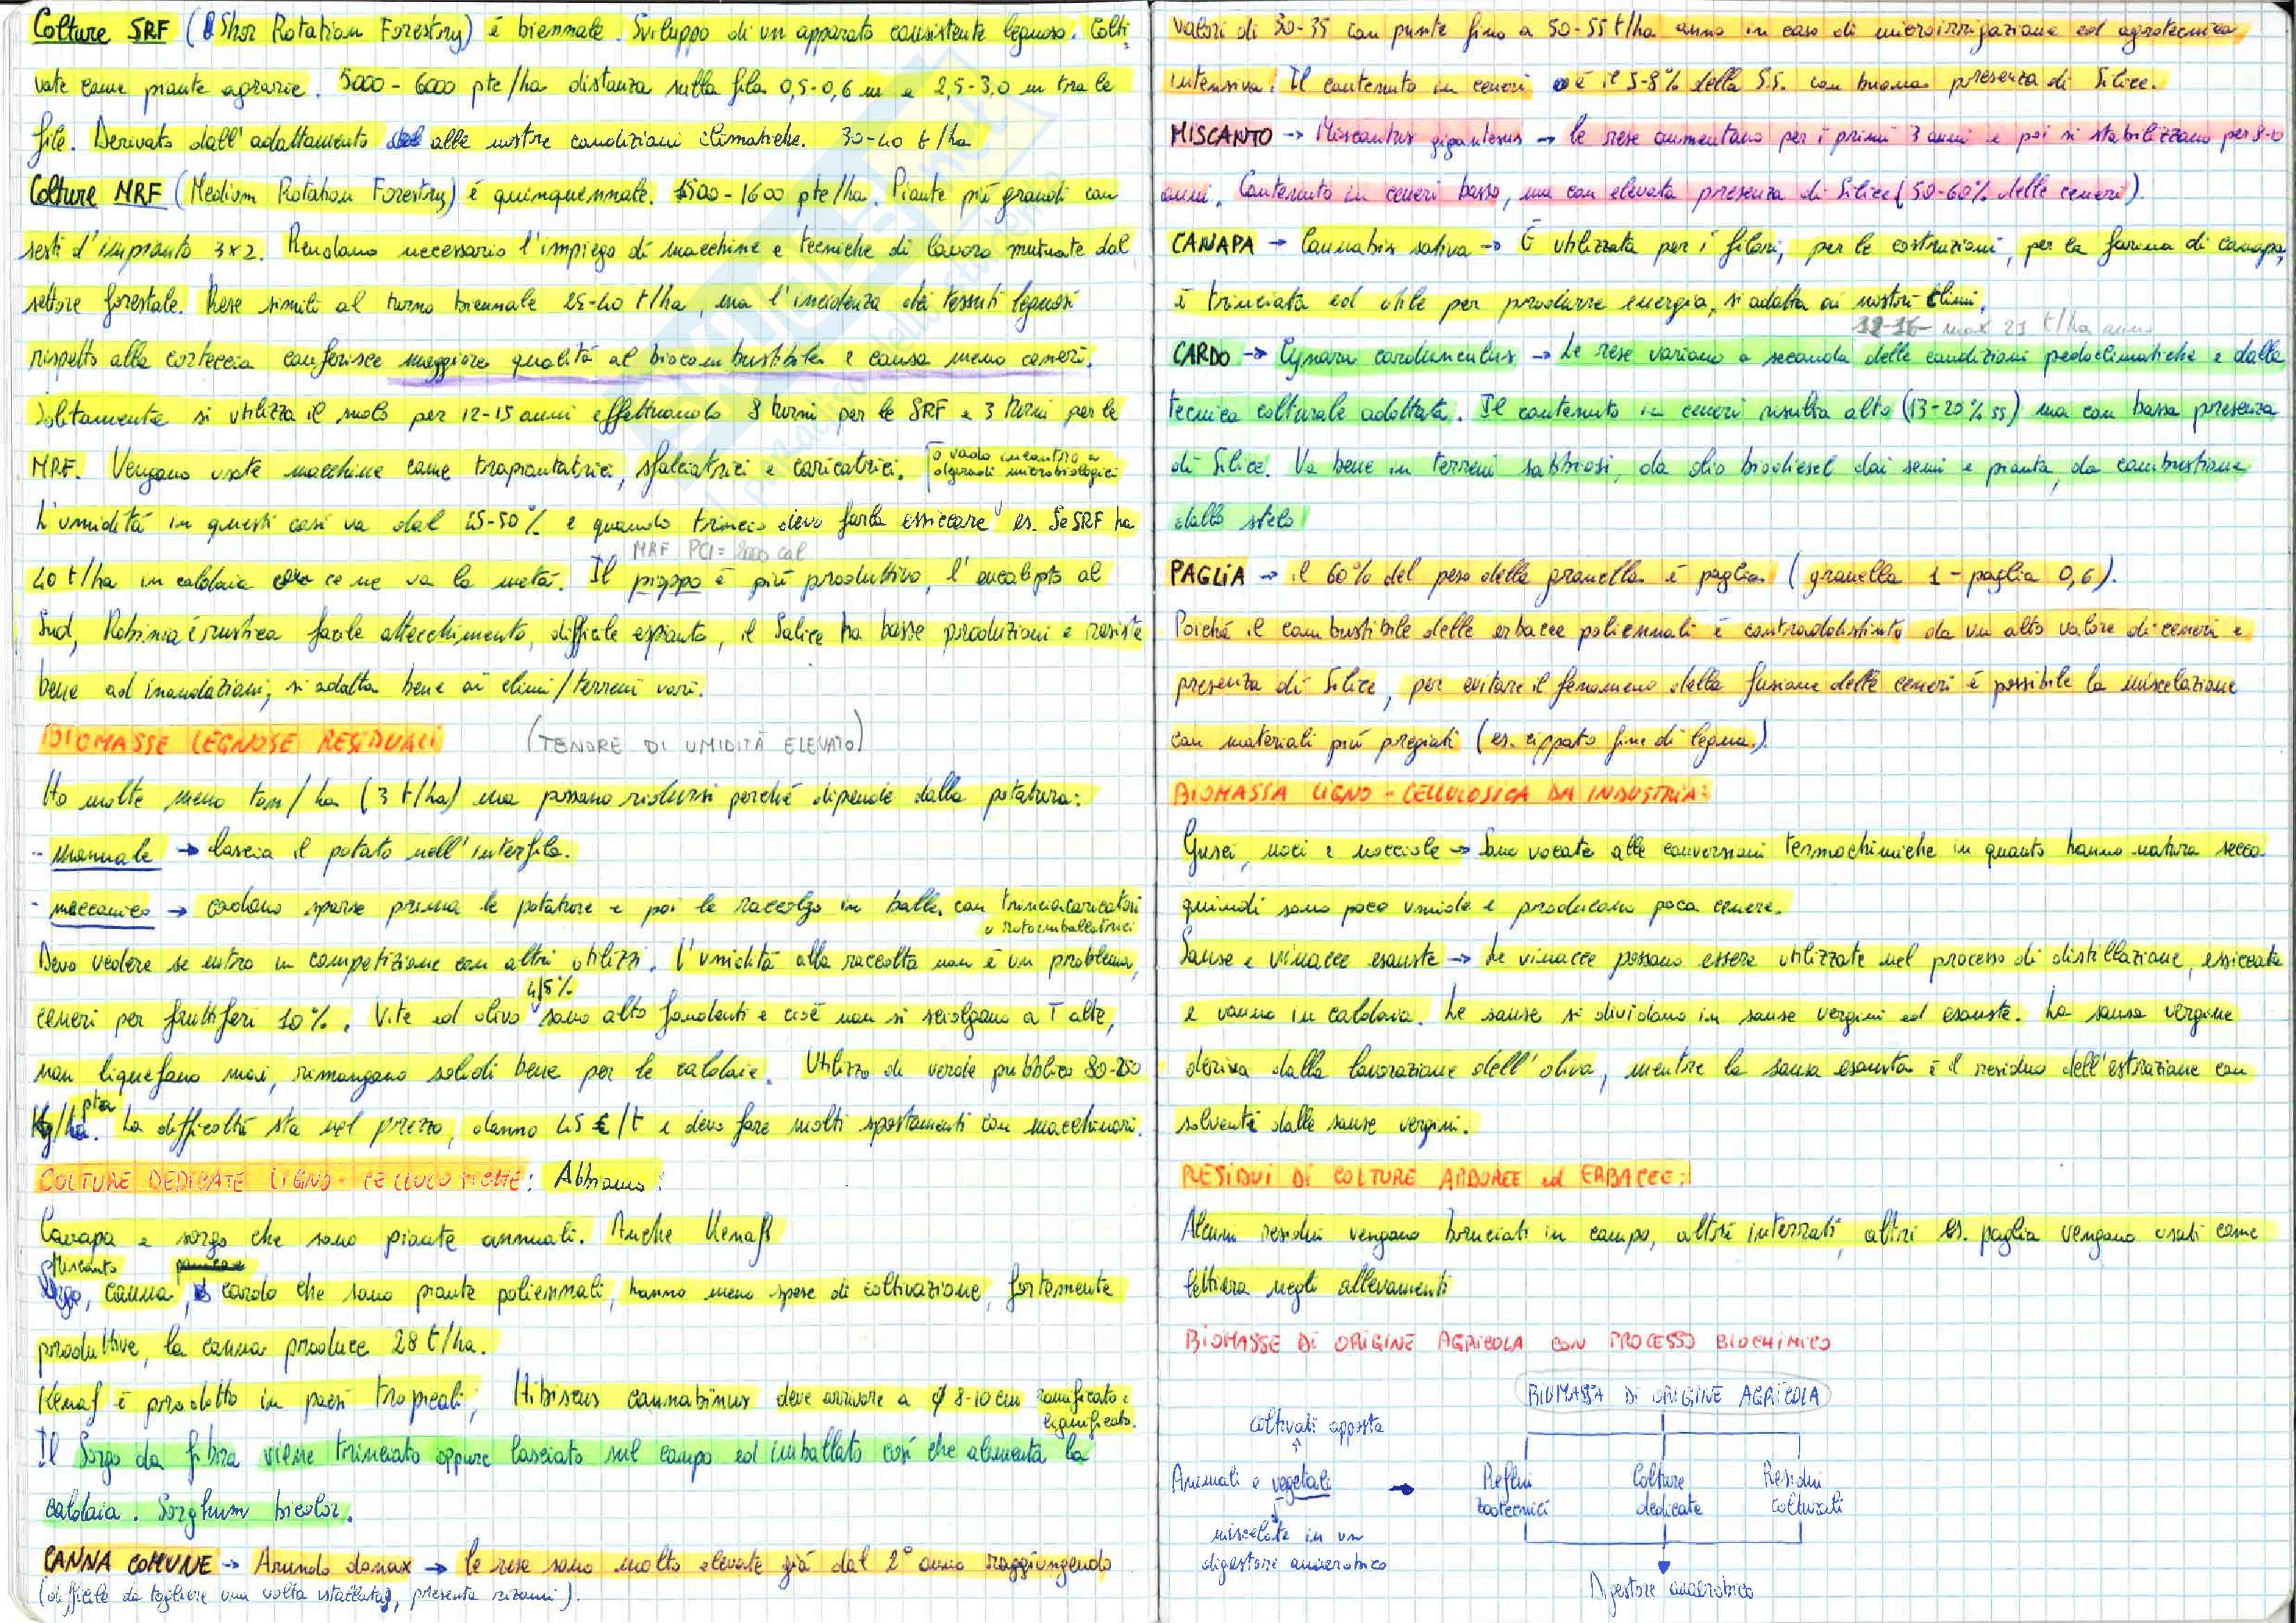 Colture SRF (Shor Rotation Forestry) è biennale. Sviluppo di un apparato consistente legnoso. Colti-
vate come piante agrarie. 5000 - 6000 pte/ha distanza sulla fila 0,5-0,6 m e 2,5-3,0 m tra le
file. Derivato dall'adattamento alle nostre condizioni climatiche. 30-40 t/ha
Colture MRF (Medium Rotation Forestry) è quinquennale. 1500 - 1600 pte/ha. Piante più grandi con
sesti d'impianto 3x2. Rendono necessario l'impiego di macchine e tecniche di lavoro mutuate dal
settore forestale. Rese simili al turno biennale 25-40 t/ha, ma l'incidenza dei tessuti legnosi
rispetto alla corteccia conferisce maggiore qualità al biocombustibile e causa meno ceneri.
Solitamente si utilizza il suolo per 12-15 anni effettuando 8 turni per le SRF e 3 turni per le
MRF. Vengono usate macchine come trapiantatrici, sfalciatrici e caricatrici.
o vado incontro a
degradi microbiologici
L'umidità in questi casi va dal 45-50% e quando trincio devo farla essiccare es. Se SRF ha
MRF PCI = 2000 cal
40 t/ha in caldaia ce ne va la metà. Il pioppo è più produttivo, l'eucalipto al
Sud, Robinia è rustica facile attecchimento, difficile espianto, il Salice ha basse produzioni e resiste
bene ad inondazioni, si adatta bene ai climi/terreni vari.
BIOMASSE LEGNOSE RESIDUALI (TENORE DI UMIDITÀ ELEVATO)
Ho molte meno ton/ha (3 t/ha) ma possono ridursi perché dipende dalla potatura:
- manuale → lascia il potato nell'interfila.
- meccanica → cadono sparse prima le potature e poi le raccolgo in balle, con trinciacaricatori
o rotoimballatrici
Devo vedere se entro in competizione con altri utilizzi. L'umidità alla raccolta non è un problema,
4/5%
ceneri per fruttiferi 10%. Vite ed olivo sono alto fondenti e cioè non si sciolgono a T alte,
non liquefano mai, rimangono solidi bene per le caldaie. Utilizzo di verde pubblico 80-250
pta
Kg/ha. La difficoltà sta nel prezzo, danno 45 €/t e devo fare molti spostamenti con macchinari.
COLTURE DEDICATE LIGNO-CELLULOSICHE: Abbiamo:
Canapa e sorgo che sono piante annuali. Anche Kenaf
Miscanto
Sorgo, canna, cardo che sono piante poliennali, hanno meno spese di coltivazione, fortemente
produttive, la canna produce 28 t/ha.
Kenaf è prodotto in paesi tropicali, Hibiscus cannabinus deve arrivare a ϕ 8-10 cm ramificato e
lignificato.
Il Sorgo da fibra viene trinciato oppure lasciato sul campo ed imballato così che alimenta la
caldaia. Sorghum bicolor.
CANNA COMUNE → Arundo donax → le rese sono molto elevate già dal 2° anno raggiungendo
(difficile da togliere una volta istallata, presenta rizomi).
valori di 30-35 con punte fino a 50-55 t/ha anno in caso di microirrigazione ed agrotecnica
intensiva. Il contenuto in ceneri è il 5-8% della S.S. con buona presenza di Silice.
MISCANTO → Miscantus giganteus → le rese aumentano per i primi 3 anni e poi si stabilizzano per 8-10
anni. Contenuto in ceneri basso, ma con elevata presenza di Silice (50-60% delle ceneri).
CANAPA → Cannabis sativa → È utilizzata per i filari, per le costruzioni, per la farina di canapa,
è trinciata ed utile per produrre energia, si adatta ai nostri climi.
max 21 t/ha anno
CARDO → Cynara cardunculus → Le rese variano a seconda delle condizioni pedoclimatiche e dalla
tecnica colturale adottata. Il contenuto in ceneri risulta alto (13-20% ss) ma con bassa presenza
di Silice. Va bene in terreni sabbiosi, da olio biodiesel dai semi e pianta da combustione
dallo stelo
PAGLIA → il 60% del peso della granella è paglia (granella 1 - paglia 0,6).
Poiché il combustibile delle erbacee poliennali è contraddistinto da un alto valore di ceneri e
presenza di Silice, per evitare il fenomeno della fusione delle ceneri è possibile la miscelazione
con materiali più pregiati (es. cippato fine di legna).
BIOMASSA LIGNO-CELLULOSICA DA INDUSTRIA:
Gusci, noci e nocciole → Sono vocate alle conversioni termochimiche in quanto hanno natura secca
quindi sono poco umide e producono poca cenere.
Sanse e vinacce esauste → Le vinacce possono essere utilizzate nel processo di distillazione, essiccate
e vanno in caldaia. Le sanse si dividono in sanse vergini ed esauste. La sansa vergine
deriva dalla lavorazione dell'oliva, mentre la sansa esausta è il residuo dell'estrazione con
solventi dalle sanse vergini.
RESIDUI DI COLTURE ARBOREE ed ERBACEE:
Alcuni residui vengono bruciati in campo, altri interrati, altri es. paglia vengono usati come
lettiera negli allevamenti
BIOMASSE DI ORIGINE AGRICOLA CON PROCESSO BIOCHIMICO
BIOMASSA DI ORIGINE AGRICOLA
coltivati apposta
Animali e vegetali → Reflui zootecnici Colture dedicate Residui colturali
miscelate in un
digestore anaerobico
Digestore anaerobico